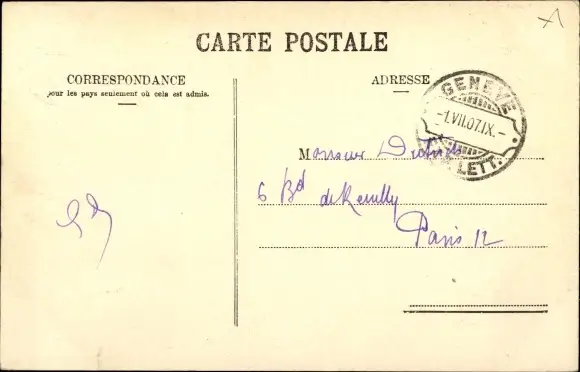 CARTE POSTALE
CORRESPONDANCE
pour les pays seulement où cela est admis.
ADRESSE
GENÈVE
-1.VII.07.IX.-
LETT.
Monsieur
6 Bd de Reuilly
Paris 12